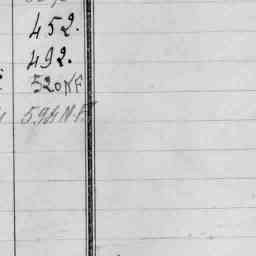 452.
492.
520 N F
594 N.F.